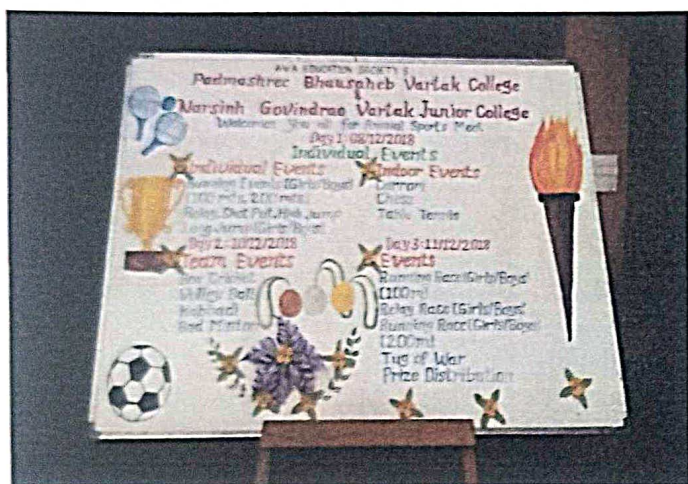 EDUCATION SOCIETY'S
Padmashree Bhausaheb Vartak College
&
Narsinh Govindrao Vartak Junior College
Welcomes you all for Annual Sports Meet
Day 1: 08/12/2018
Individual Events
Individual Events
Running Events (Girls/Boys)
(100 mts, 200 mts)
Relay, Shot Put, High Jump
Long Jump (Girls/Boys)
Indoor Events
Carrom
Chess
Table Tennis
Day 2:-10/12/2018
Team Events
Box Cricket
Volley Ball
Kabbadi
Bad Minton
Day 3:-11/12/2018
Events
Running Race (Girls/Boys)
(100m)
Relay Race (Girls/Boys)
Running Race (Girls/Boys)
(200mt)
Tug of War
Prize Distribution